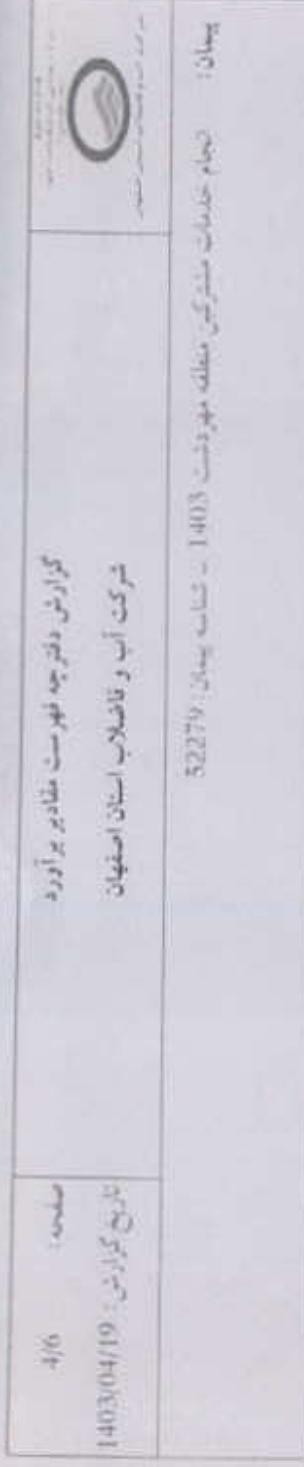 گزارش دفترچه فهرست مقادیر برآورد
شرکت آب و فاضلاب استان اصفهان
صفحه: 4/6
تاریخ گزارش: 1403/04/19
پیمان: انجام خدمات مشترکین منطقه مهردشت 1403 - شناسه پیمان: 52279